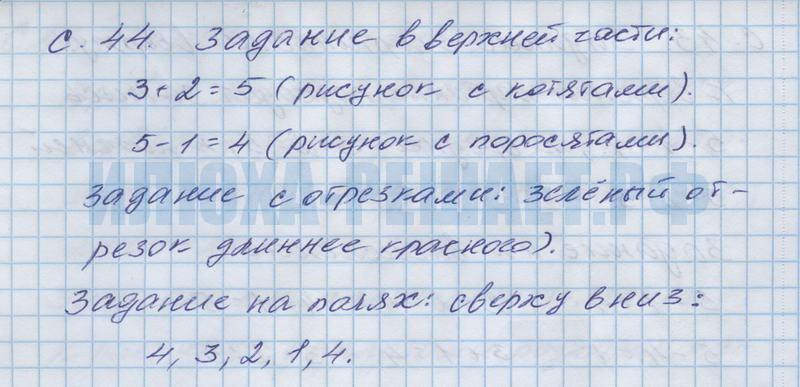 с. 44. Задание в верхней части:
3+2=5 (рисунок с котятами).
5-1=4 (рисунок с поросятами).
ИЛЮХА-РЕШАЕТ.РФ
Задание с отрезками: зелёный от-
резок длиннее красного).
Задание на полях: сверху вниз:
4, 3, 2, 1, 4.